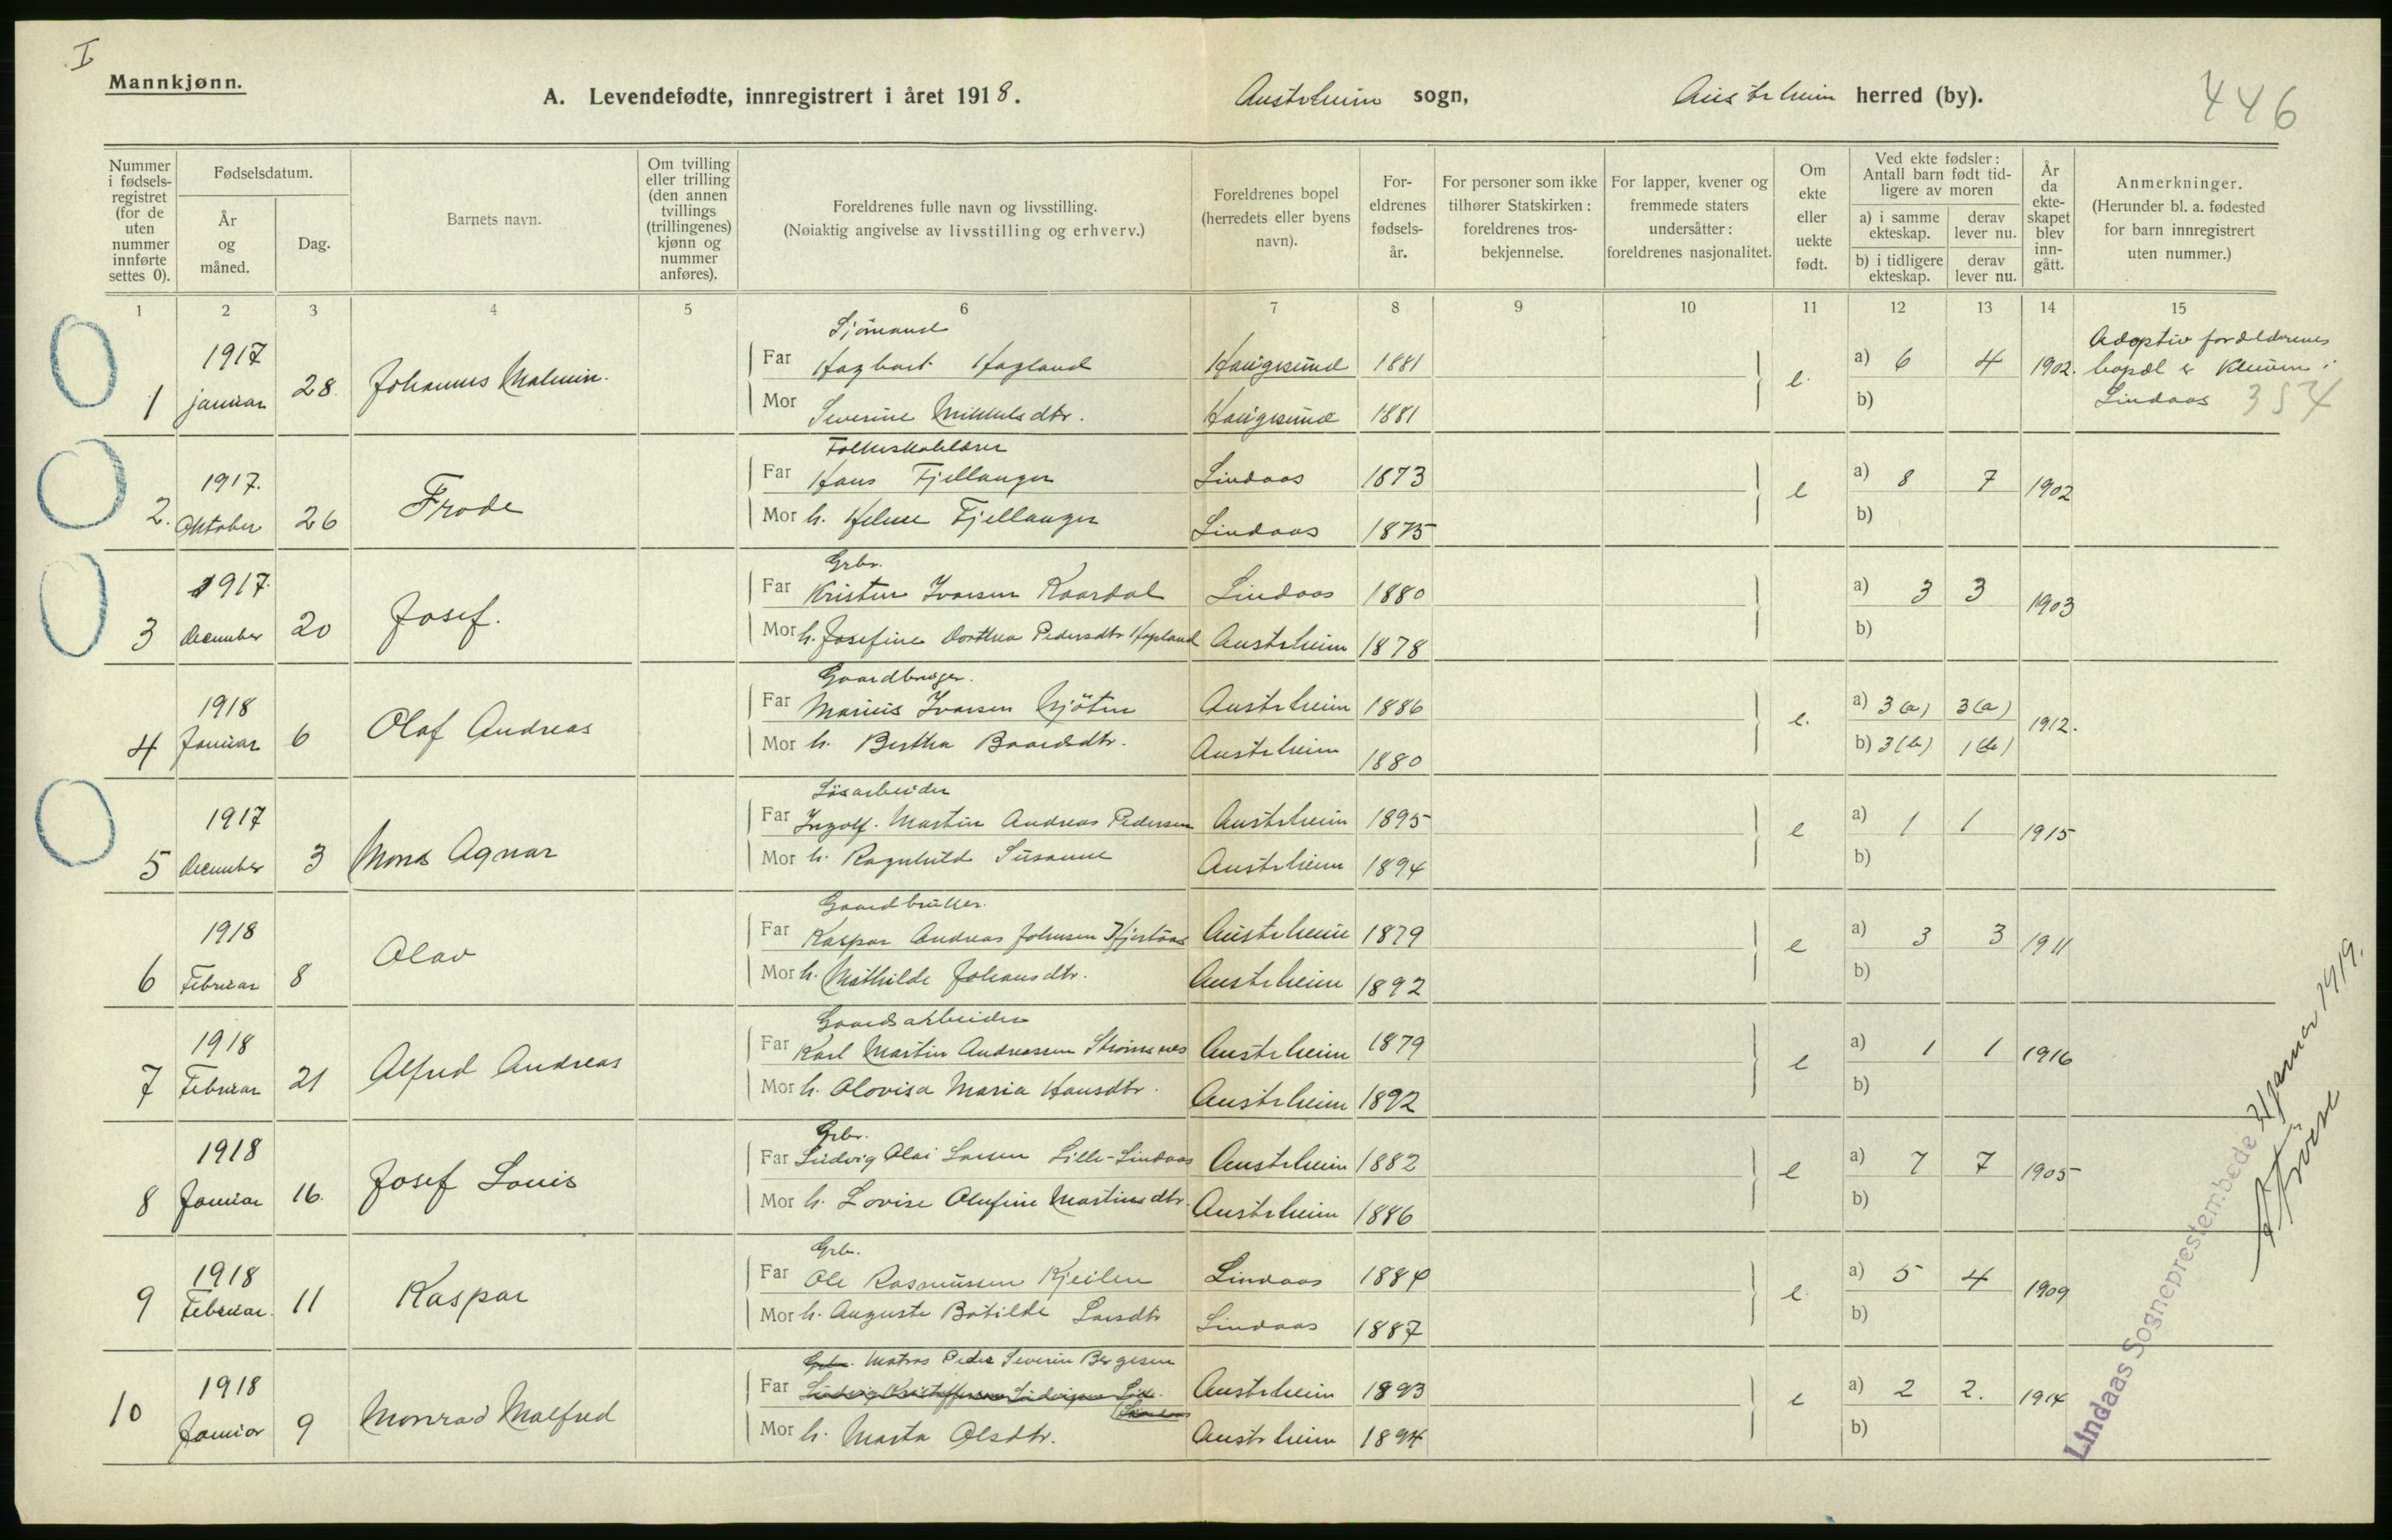 I
Mannkjønn.
A. Levendefødte, innregistrert i året 1918.
Austrheim sogn,
Austrheim herred (by).
446
Nummer i fødsels-registret (for de uten nummer innførte settes 0).
Fødselsdatum.
År og måned.
Dag.
Barnets navn.
Om tvilling eller trilling (den annen tvillings (trillingenes) kjønn og nummer anføres).
Foreldrenes fulle navn og livsstilling.
(Nøiaktig angivelse av livsstilling og erhverv.)
Foreldrenes bopel (herredets eller byens navn).
For-eldrenes fødsels-år.
For personer som ikke tilhører Statskirken: foreldrenes tros-bekjennelse.
For lapper, kvener og fremmede staters undersåtter: foreldrenes nasjonalitet.
Om ekte eller uekte født.
Ved ekte fødsler: Antall barn født tid-ligere av moren
a) i samme ekteskap.
derav lever nu.
b) i tidligere ekteskap.
derav lever nu.
År da ekte-skapet blev inn-gått.
Anmerkninger.
(Herunder bl. a. fødested for barn innregistrert uten nummer.)
1 2 3 4 5 6 7 8 9 10 11 12 13 14 15
Sjömand
1 1917 januar 28. Johannes Malmin.
Far Hagbart Hagland Haugesund 1881
Mor Severine Mikkelsdtr. Haugesund 1881
e. a) 6 4 1902.
b)
Adoptivforældrenes
bopæl er i
Lindaas 354
Folkeskolelærer
2. 1917. Oktober 26 Frode
Far Hans Fjellanger Lindaas 1873
Mor h. Helene Fjellanger Lindaas 1875
e a) 8 7 1902
b)
Grbr.
3 1917. December 20 Josef.
Far Kristen Ivarsen Kaardal Lindaas 1880
Mor h. Josefine Dorthea Pedersdtr Hopland Austrheim 1878
a) 3 3 1903
b)
Gaardbruger.
4 1918 Januar 6 Olaf Andreas
Far Marius Ivarsen Njöten Austrheim 1886
Mor h. Bertha Baardsdtr. Austrheim 1880
e. a) 3(a) 3(a) 1912.
b) 3(b) 1(b)
Løsarbeider
5 1917 December 3 Mons Agnar
Far Ingolf Martin Andreas Pedersen Austrheim 1895
Mor h. Ragnhild Susanne Austrheim 1894
e a) 1 1 1915
b)
Gaardbruker.
6 1918 Februar 8 Olav
Far Kaspar Andreas Johnsen Austrheim 1879
Mor h. Mathilde Johansdtr. Austrheim 1892
e a) 3 3 1911
b)
Gaardsarbeider
7 1918 Februar 21 Alfred Andreas
Far Karl Martin Andreassen Strömsnes Austrheim 1879
Mor h. Olovisa Maria Hansdtr. Austrheim 1892
e a) 1 1 1916
b)
Grbr.
8 1918 Januar 16. Josef Louis
Far Ludvig Olai Larsen Lille-Lindaas Austrheim 1882
Mor h. Lovise Olufine Martinsdtr. Austrheim 1886
e a) 7 7 1905
b)
Grbr.
9 1918 Februar. 11 Kaspar
Far Ole Rasmussen Kjeilen Lindaas 1884
Mor h. Auguste Botilde Larsdtr Lindaas 1887
e. a) 5 4 1909
b)
Grbr. Matros Peder Severin Bergesen
10 1918 Januar 9 Monrad Malfred
Far Austrheim 1893
Mor h. Marta Olsdtr. Austrheim 1894
e a) 2 2. 1914
b)
Lindaas Sogneprestembede 31 januar 1919.